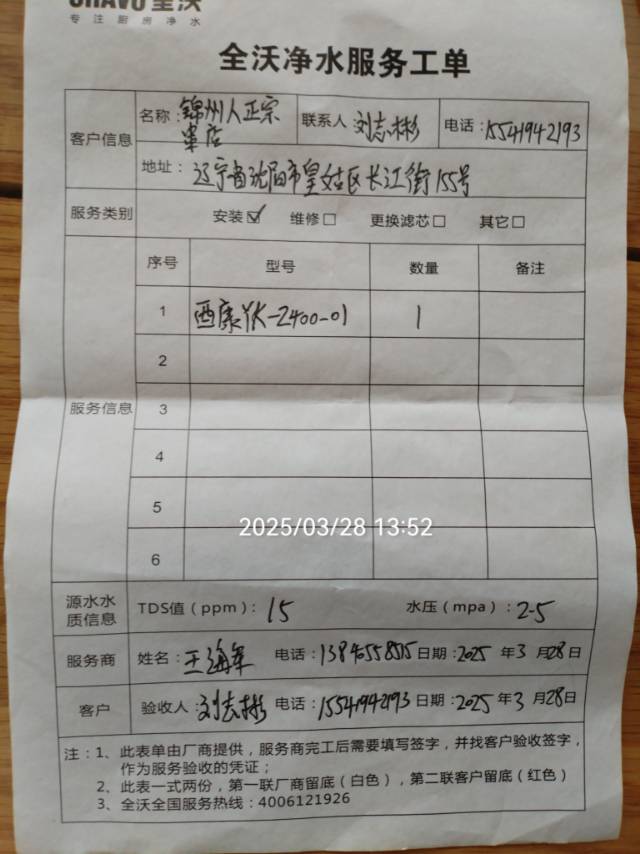 CHAVO 全沃
专注厨房净水
全沃净水服务工单
客户信息
名称：锦州人正宗串店 联系人 刘志彬 电话：15541942193
地址：辽宁省沈阳市皇姑区长江街155号
服务类别 安装☑ 维修□ 更换滤芯□ 其它□
服务信息
序号 型号 数量 备注
1 西康YK-2400-01 1
2
3
4
5
2025/03/28 13:52
6
源水水质信息 TDS值（ppm）：15 水压（mpa）：2-5
服务商 姓名：王海军 电话：日期：2025 年 3 月 28 日
客户 验收人：刘志彬 电话：15541942193 日期：2025 年 3 月 28 日
注：1、此表单由厂商提供，服务商完工后需要填写签字，并找客户验收签字，
作为服务验收的凭证；
2、此表一式两份，第一联厂商留底（白色），第二联客户留底（红色）
3、全沃全国服务热线：4006121926